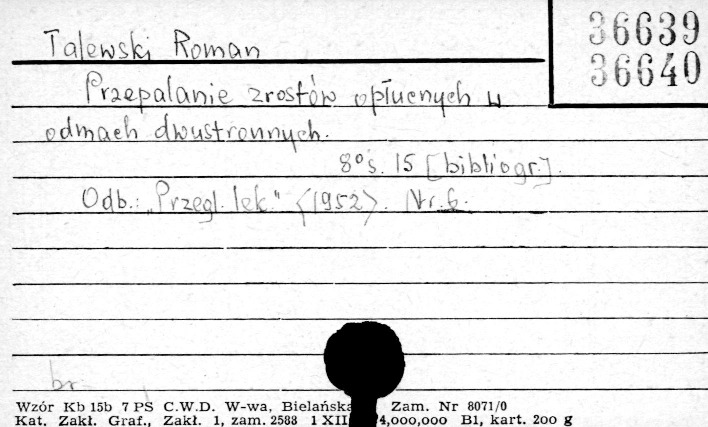 Talewski Roman
36639
36640
Przepalanie zrostów opłucnych w
odmach dwustronnych.
8° s. 15 [bibliogr.].
Odb.: „Przegl. lek." <1952>. Nr. 6.
br.
Wzór Kb 15b 7 PS C.W.D. W-wa, Bielańska Zam. Nr 8071/0
Kat. Zakł. Graf., Zakł. 1, zam. 2588 1 XII 4,000,000 B1, kart. 200 g